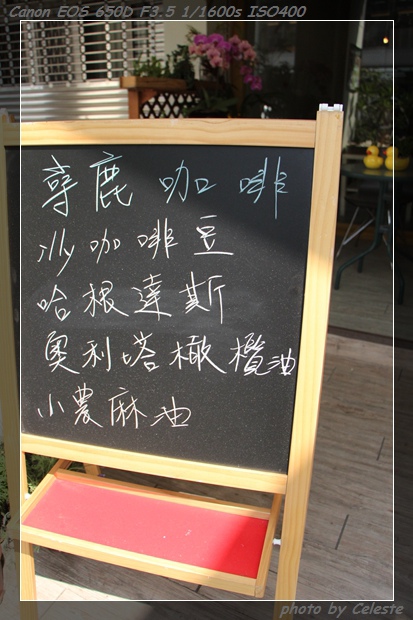 Canon EOS 650D F3.5 1/1600s ISO400
鹿 咖 啡
illy 咖啡豆
哈根達斯
奧利塔橄欖油
小農麻油
photo by Celeste